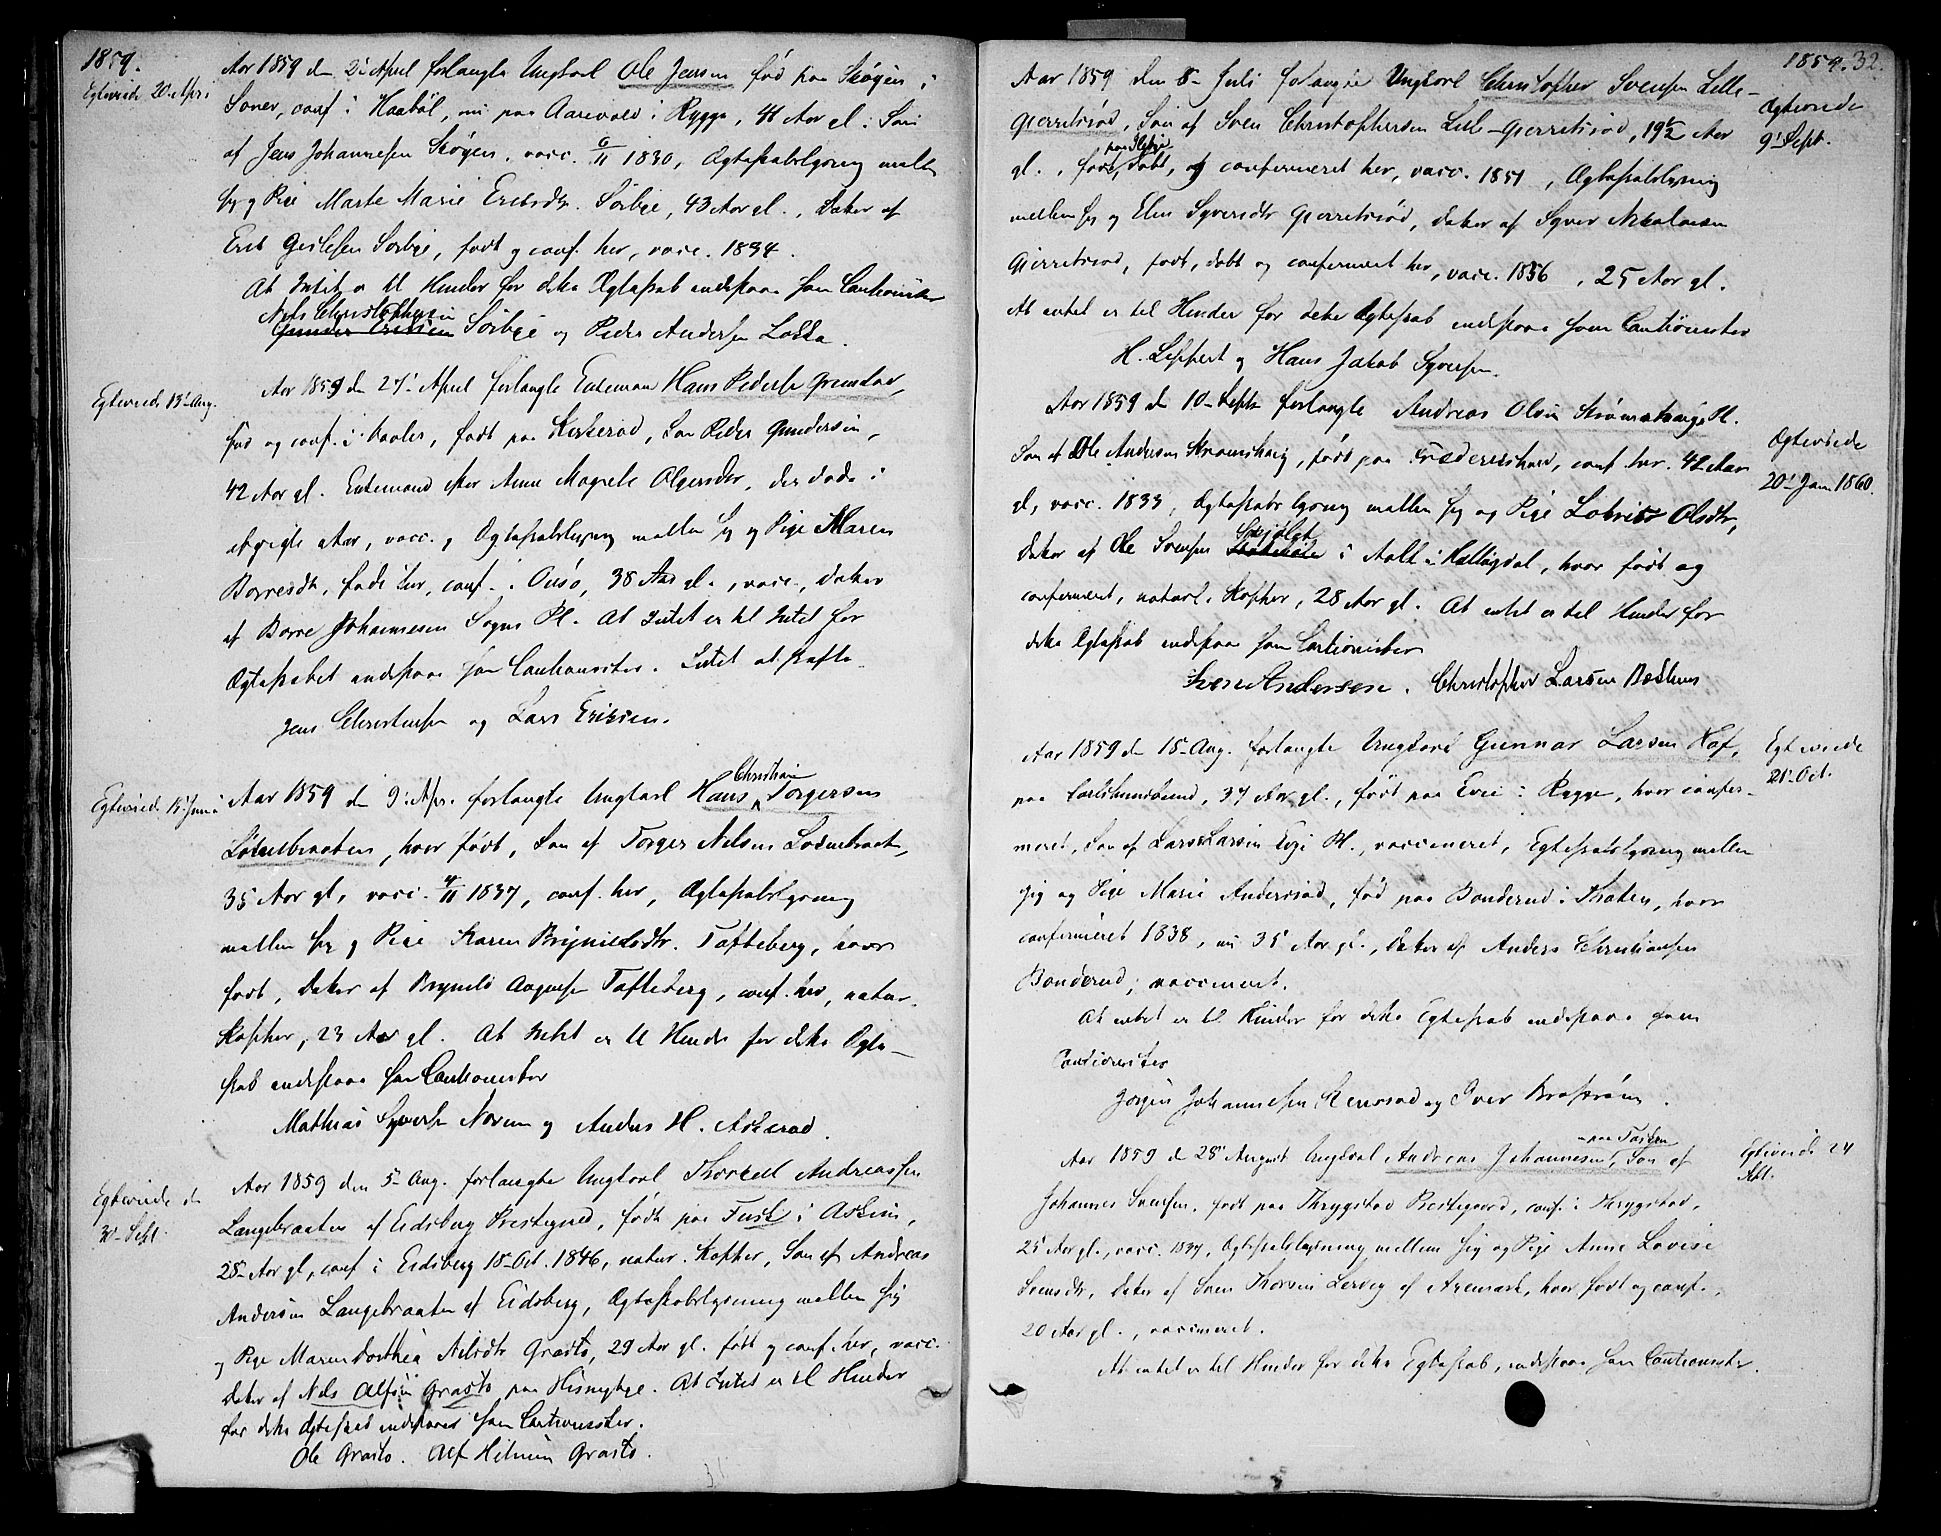 1859.
Egteviede 20. Apr.
Aar 1859 den 2 April forlangte Ungkarl Ole Jensen fød paa Skøgen i
Soner, conf. i Haabøl, nu paa Aarevold i Rygge, 41 Aar gl. Søn
af Jens Johannesen Skøgen, vacc. 6/11 1830, Ægteskabslysning mellem
sig og Pige Marte Marie Ericsdtr. Sørbye, 43 Aar gl., Datter af
Eric Sorbye, født og conf. her, vacc. 1834.
At Intet er til Hinder for dette Ægteskab indestaae som Cautionister
Nils Christophersen
Gunder Ericsen Sørbye og Peder Andersen Lokka.
Egteviede 13 Aug.
Aar 1859 den 27' April forlangte Enkemand Hans Pedersen Grimstad,
fød og conf. i Vaaler, født paa Kirkerød, Søn Peder Gundersen,
42 Aar gl. Enkemand efter Anne Magrete Olgersdtr, der døde i
Aar, vacc. og Ægteskabslysning mellem sig og Pige Maren
Borresdtr, født her, conf. i Onsø, 38 Aar gl., vacc., Datter
af Borre Johannesen Sogns Pl. At Intet er til Intet for
Ægteskabet indestaae som Cautionister. Intet at skifte.
Jens Christensen og Lars Ericsen.
Egteviede 18 Juni
Aar 1859 den 9' Apr. forlangte Ungkarl Hans Torgersen
Christian
Løkenbraaten, hvor født, Søn af Torger Nilsen Løkenbraat,
35 Aar gl, vacc. 4/11 1837, conf. her, Ægteskabslysning
mellem sig og Pige Karen Brynildsdtr. Tofteberg, hvor
født, Datter af Brynild Tofteberg, conf. her, natur.
Kopper, 23 Aar gl. At Intet er til Hinder for dette Ægte-
skab indestaae som Cautionister
Mathias Syversen Norum og Anders H. Askerød.
Egteviede d.
30 Sept.
Aar 1859 den 5 Aug. forlangte Ungkarl Thorvald Andreassen
Langebraaten af Eidsberg Prestegjeld, født paa Tusk i Askim,
28 Aar gl, conf. i Eidsberg 18 Oct. 1846, natur. Kopper, Søn af Andreas
Andersen Langebraaten af Eidsberg, Ægteskabslysning mellem sig
og Pige Maren Dorthea Nilsdtr Graslo, 29 Aar gl. født og conf. her, vacc.
Datter af Nils Alfsen Graslo paa. At Intet er til Hinder
for dette Ægteskab indestaaer som Cautionister.
Ole Graslo. Alf Graslo.
1859. 32.
Aar 1859 den 8 Juli forlangte Ungkarl Christopher Svensen Lille-
Gjerretsrød, Søn af Sven Christophersen Lille-Gjerretsrød, 19 1/2 Aar
gl., født, døbt, og confirmeret her, vacc. 1851, Ægteskabslysning
mellem sig og Elen Syversdtr Gjerretsrød, Datter af Syver Nicolaisen
Gjerretsrød, født, døbt og confirmeret her, vacc. 1836, 25 Aar gl.
At intet er til Hinder for dette Ægteskab indestaae som Cautionister
H. Leppert og Hans Jakob Syversen.
Ægteviede
9' Sept.
Aar 1859 d. 10 Septr forlangte Andreas Olsen Strømshaug Pl.
Søn af Ole Andersen Strømshaug, født paa Frederikshald, conf. her. 42 Aar
gl, vacc. 1833, Ægteskabslysning mellem sig og Pige Lovise Olsdtr,
Datter af Ole Svensen i Aal i Hallingdal, hvor født og
confirmeret, naturl. Kopper, 28 Aar gl. At intet er til Hinder for
dette Ægteskab indestaae som Cautionister
Sven Andersen. Christopher Larsen
Ægteviede
20' Jan. 1860.
Aar 1859 d. 15 Aug. forlangte Ungkarl Gunnar Larsen Hof,
paa Carlshusbund, 37 Aar gl., født paa Evie i Rygge, hvor confir-
meret, Søn af Lars Larsen Evje Pl., vaccineret, Egteskabslysning mellem
sig og Pige Marie Andersdtr, fød paa Bonderud i Skibtvet, hvor
confirmeret 1838, nu 35 Aar gl., Datter af Anders Christiansen
Bonderud, vaccineret.
At intet er til Hinder for dette Egteskab indestaae som
Cautionister
Jørgen Johannesen og Iver
Egteviede
21' Oct.
Aar 1859 d. 28' August Ungkarl Andreas Johannesen, Søn af
Johannes Svensen, født paa Thrygstad Prestegaard, conf. i Thrygstad,
25 Aar gl., vacc. 1837, Ægteskabslysning mellem sig og Pige Anne Lovise
Svensdtr, Datter af Sven Larvig af Aremark, hvor født og conf.,
20 Aar gl., vaccineret.
At intet er til Hinder for dette Egteskab, indestaae som Cautionister.
Egteviede 24
Sept.